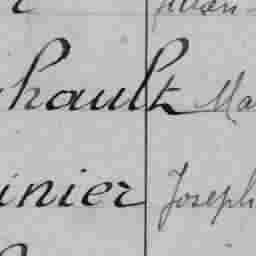 hault Ma
inier Joseph